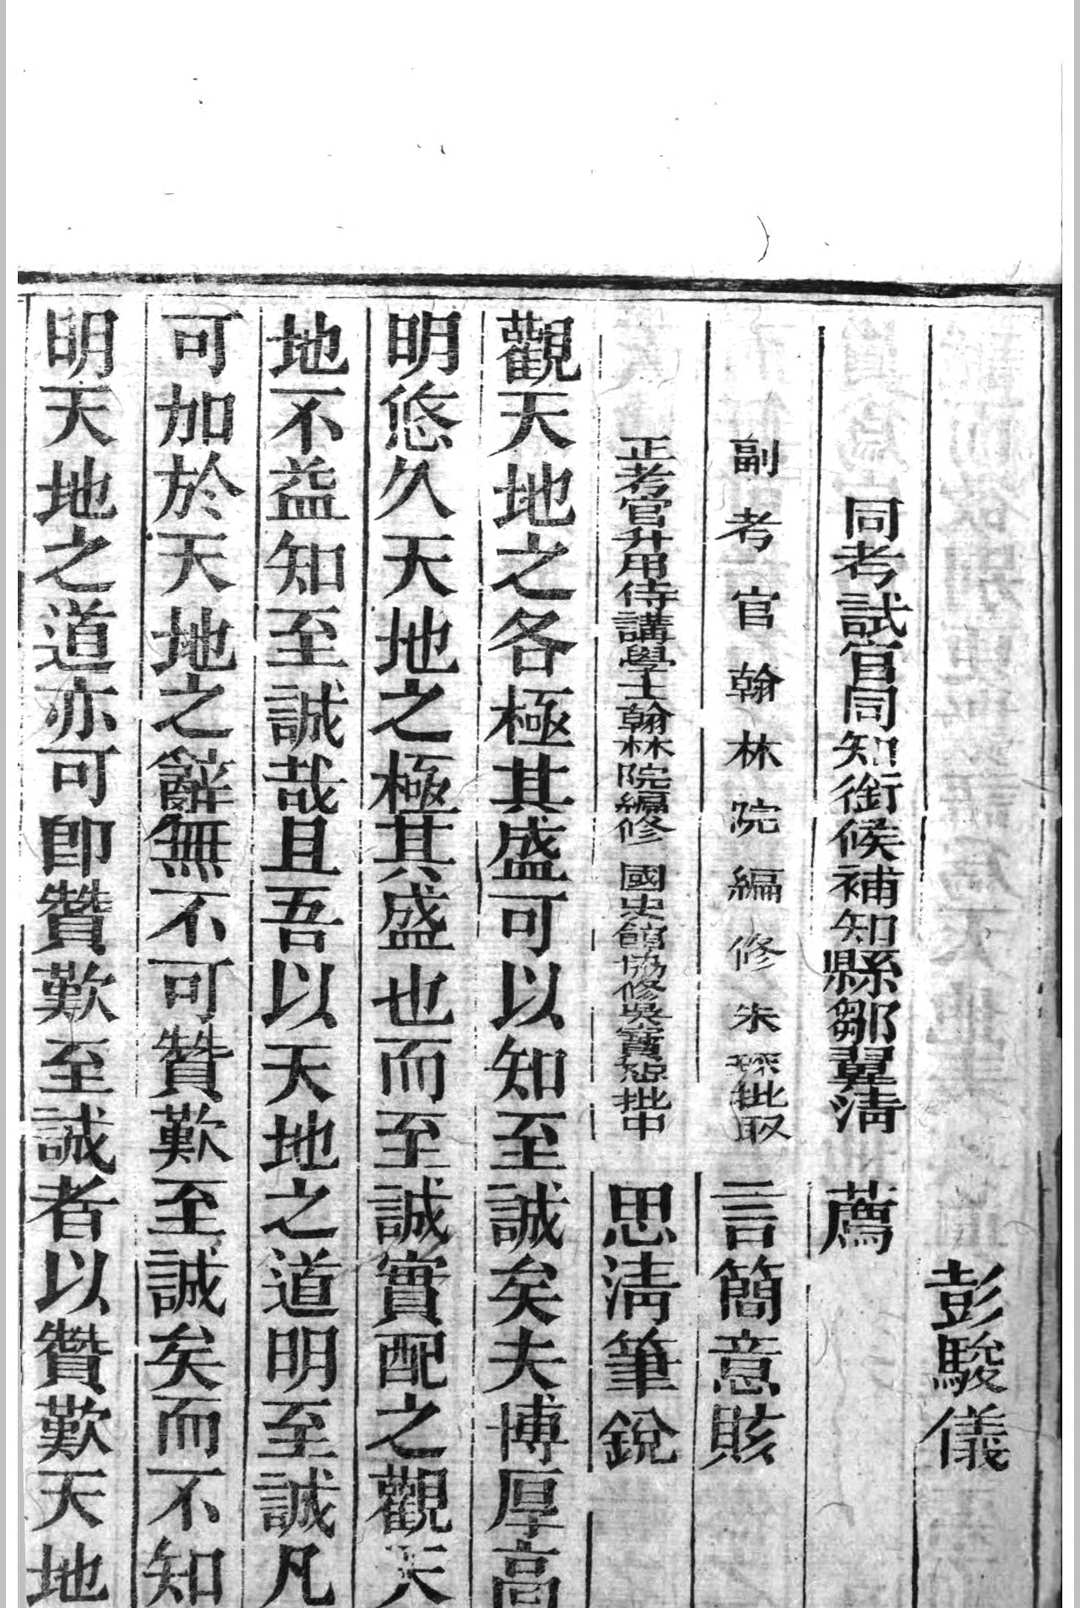 彭駿儀
同考試官同知銜候補知縣鄒翼淸 薦
副考官翰林院編修朱琛批取 言簡意賅
正考官升用侍講學士翰林院編修 國史館協修吳寶恕批中 思淸筆銳
觀天地之各極其盛可以知至誠矣夫博厚高
明悠久天地之極其盛也而至誠實配之觀天
地不益知至誠哉且吾以天地之道明至誠凡
可加於天地之辭無不可贊歎至誠矣而不知
明天地之道亦可卽贊歎至誠者以贊歎天地